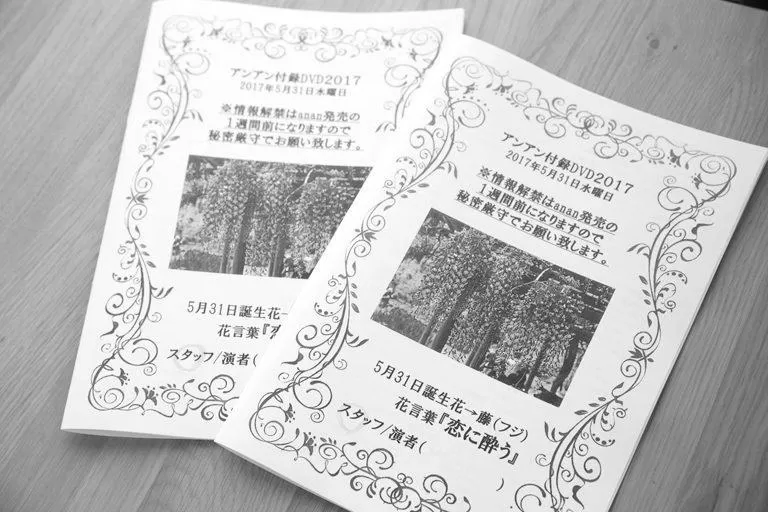 アンアン付録DVD2017
2017年5月31日水曜日
※情報解禁はanan発売の
1週間前になりますので
秘密厳守でお願い致します。
5月31日誕生花→
花言葉『恋
スタッフ/演者(
アンアン付録DVD2017
2017年5月31日水曜日
※情報解禁はanan発売の
1週間前になりますので
秘密厳守でお願い致します。
5月31日誕生花→藤(フジ)
花言葉『恋に酔う』
スタッフ/演者( )